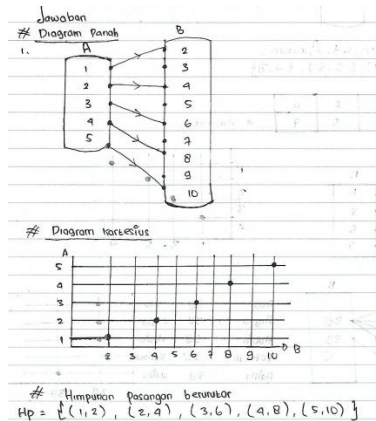 Jawaban
# Diagram Panah
1. A B
1
2
3
4
5
2
3
4
5
6
7
8
9
10
# Diagram Kartesius
A
5
4
3
2
1
2 3 4 5 6 7 8 9 10 B
# Himpunan pasangan berurutan
Hp = {(1,2), (2,4), (3,6), (4,8), (5,10)}